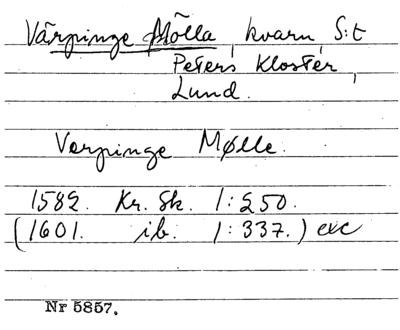 Värpinge Mölla, kvarn, S:t
Peters Kloster,
Lund.
Verpinge Mølle.
1582. Kr. Sk. 1:250.
(1601. ib. 1:337.) exc
Nr 5857.